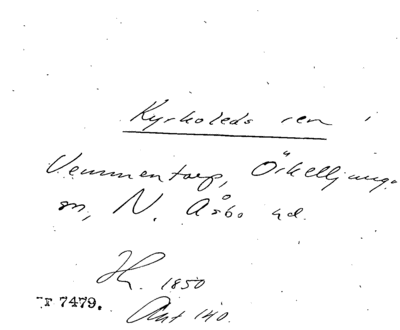 Kyrkoleds ren i
Vemmentorp, Örkelljunga
sn, N. Åsbo hd.
Hk. 1850
7479. Ant 140.